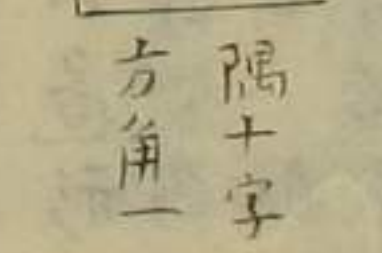 隅十字
方角一